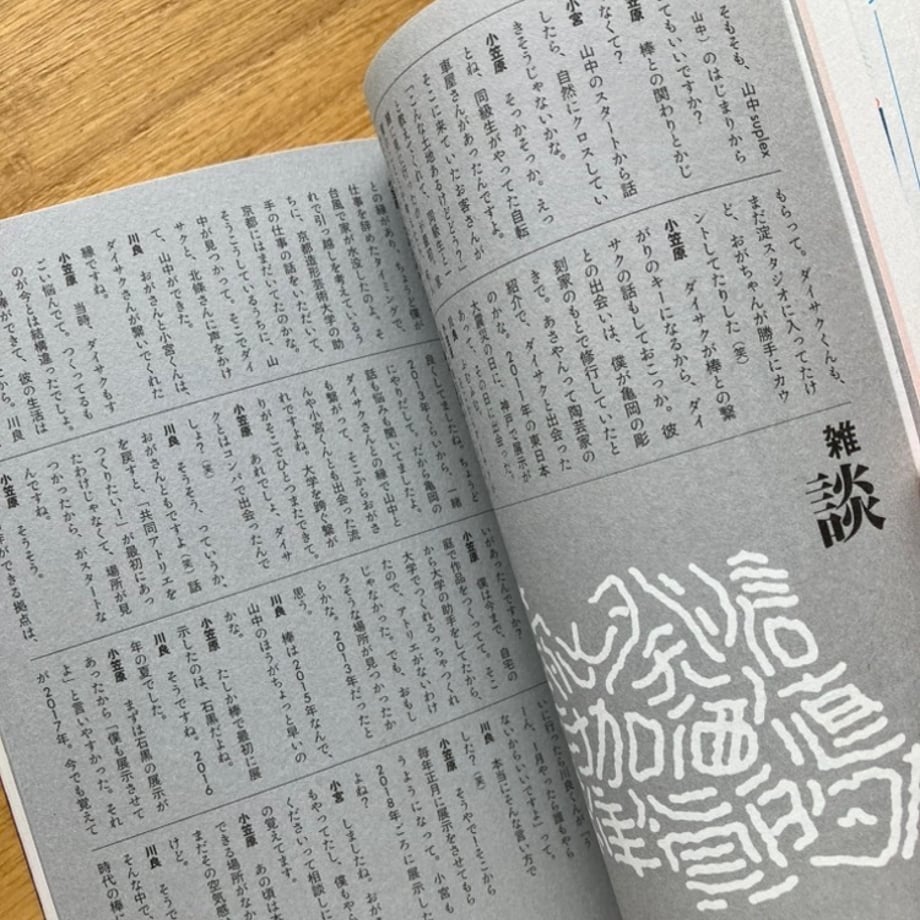 そもそも、山中suplex
山中）のはじまりから
てもいいですか？
棒との関わりとかじ
なくて？
小宮　山中のスタートから話
したら、自然にクロスしてい
きそうじゃないかな。
小笠原　そっかそっか。えっ
とね、同級生がやってた自転
車屋さんがあったんですよ。
そこに来ていたお客さんが
「こんな土地あるけどどう？」
もらって。ダイサクくんも、
まだ淀スタジオに入ってたけ
ど、おがちゃんが勝手にカウ
ントしてたりした（笑）
小笠原　ダイサクが棒との繋
がりのキーになるから、ダイ
サクの話もしておこっか。彼
との出会いは、僕が亀岡の彫
刻家のもとで修行していたと
きで、あさやんって陶芸家の
紹介で、ダイサクと出会った
のかな。2011年の東日本
大震災の日に、神戸で展示が
雑談
との縁があり、ちょうど僕が
仕事を辞めたタイミングで、
台風で家が水没したのよ、そ
れで引っ越しを考えているう
ちに、京都造形芸術大学の助
手の仕事の話をいただいて、
京都にはまだいてたのかな。
そうこうしているうちに、山
中が見つかって。そこでダイ
サクと、北條さんに声をかけ
て、山中ができた。
川良　おがさんと小宮くんは、
ダイサクさんが繋いでくれた
縁ですね。
小笠原　当時、ダイサクもす
ごい悩んでて、つくってるも
のが今とは結構違ったでしょ。
良してましたね。ちょうど
2013年くらいから、一緒
にやりだして。だから亀岡の
話も悩みも聞いてましたよ。
ダイサクさんとの縁で山中と
も繋がって、そこからおがさ
んや小宮くんとも出会った流
れですよね。大学を跨ぐ繋が
りがそこでひとつまたできて。
小笠原　あれでしょ、ダイサ
クとはコンパで出会ったんで
しょ？（笑）
川良　そうそう、っていうか、
おがさんともですよ（笑）話
を戻すと、「共同アトリエを
つくりたい！」が最初にあっ
たわけじゃなくて、場所が見
つかったから、がスタートな
んですね。
小笠原　そうそう。
いがあったんですか？
小笠原　僕は今まで、自宅の
庭で作品をつくってて、そこ
から大学の助手をしてたから、
大学でつくれるっちゃつくれ
たので、アトリエがないわけ
じゃなかった。でも、おもし
ろそうな場所が見つかったか
らかな。2013年だったと
思う。
川良　棒は2015年なんで、
山中のほうがちょっと早いの
かな。
小笠原　たしか棒で最初に展
示したのは、石黒だよね。
川良　そうですね。2016
年の夏でした。
小笠原　まずは石黒の展示が
あったから「僕も展示させて
よ」と言いやすかった。それ
が2017年。今でも覚えて
いに行ったら川良くんが「う
ーん、1月やったら誰もやら
ないからいいですよ」って。
本当にそんな言い方で
した？（笑）
小笠原　そうやで！そこから
毎年正月に展示をさせてもら
うようになって。小宮も
2018年ごろに展示した
よね？
小宮　しましたね、おが
もやってたし、僕もやら
くださいって相談しに
の覚えてます。
小笠原　あの頃は
できる場所がなか
まだその空気感
けど。
川良　そうで
そんな中で、
時代の棒に